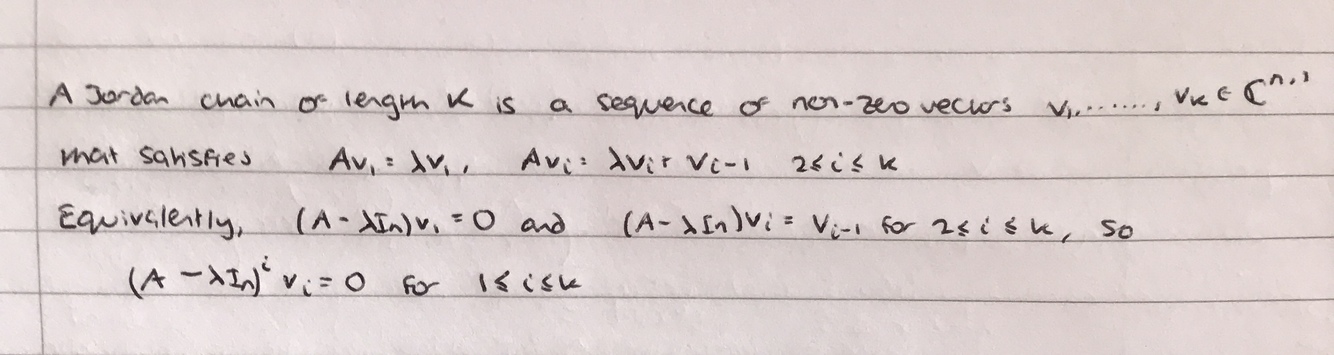 A Jordan chain of length K is a sequence of non-zero vectors v₁,......., vₖ ∈ ℂⁿ,¹
that satisfies Av₁ = λv₁, Avᵢ = λvᵢ + vᵢ₋₁ 2≤i≤k
Equivalently, (A - λIn)v₁ = 0 and (A - λIn)vᵢ = vᵢ₋₁ for 2≤i≤k, so
(A - λIn)ⁱ vᵢ = 0 for 1≤i≤k